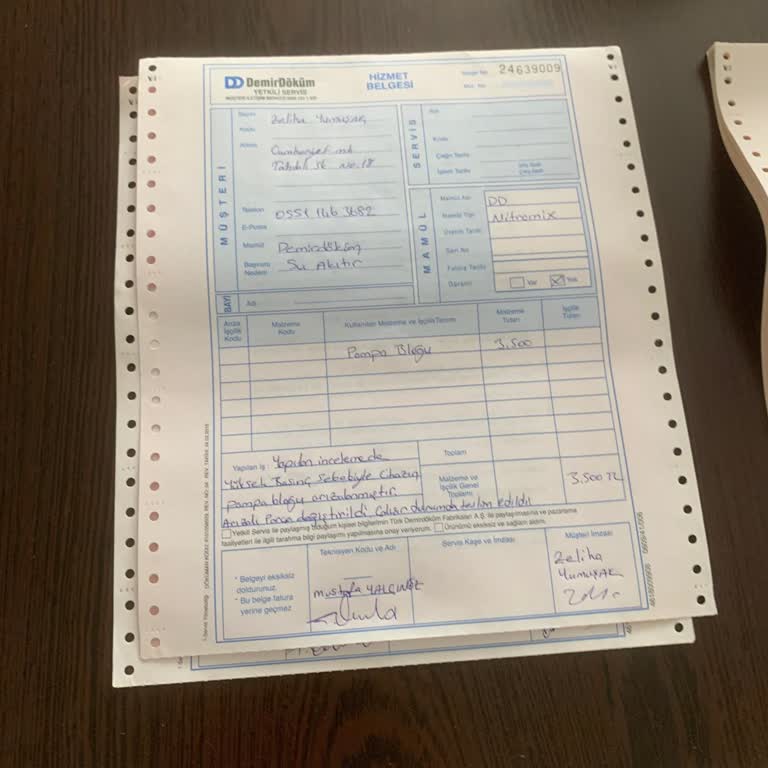 DemirDöküm
YETKİLİ SERVİS
HİZMET
BELGESİ
24639009
MÜŞTERİ
Zeliha Yumuşak
Adresi
Cumhuriyet mh
No. 18
Telefon 0551 146 3682
E-Posta
Mamül Demirdöküm
Başvuru
Nedeni
Su Akıtır
SERVİS
Adı
Kodu
Çağrı Tarihi
İşlem Tarihi
MAMÜL
Mamül Adı DD
Mamül Tipi Nitromix
Üretim Tarihi
Seri No
Fatura Tarihi
Garanti Var Yok
BAYİ
Adı
Arıza
İşçilik
Kodu
Malzeme
Kodu
Kullanılan Malzeme ve İşçilik Tanımı
Malzeme
Tutarı
İşçilik
Tutarı
Pompa Bloğu 3.500
Yapılan İş : Yapılan incelemede
yüksek Basınç sebebiyle cihazın
pompa bloğu arızalanmıştır
Arızalı Parça değiştirildi Çalışır durumda teslim edildi
Toplam
Malzeme ve
İşçilik Genel
Toplamı
3.500 TL
Yetkili Servis ile paylaşmış olduğum kişisel bilgilerimin Türk Demirdöküm Fabrikaları A.Ş. ile paylaşılmasına ve pazarlama
faaliyetleri ile ilgili tarafıma bilgi paylaşımı yapılmasına onay veriyorum. Ürünümü eksiksiz ve sağlam aldım.
* Belgeyi eksiksiz
doldurunuz.
* Bu belge fatura
yerine geçmez
Teknisyen Kodu ve Adı
Mustafa YALÇINÖZ
Servis Kaşe ve İmzası
Müşteri İmzası
Zeliha
Yumuşak